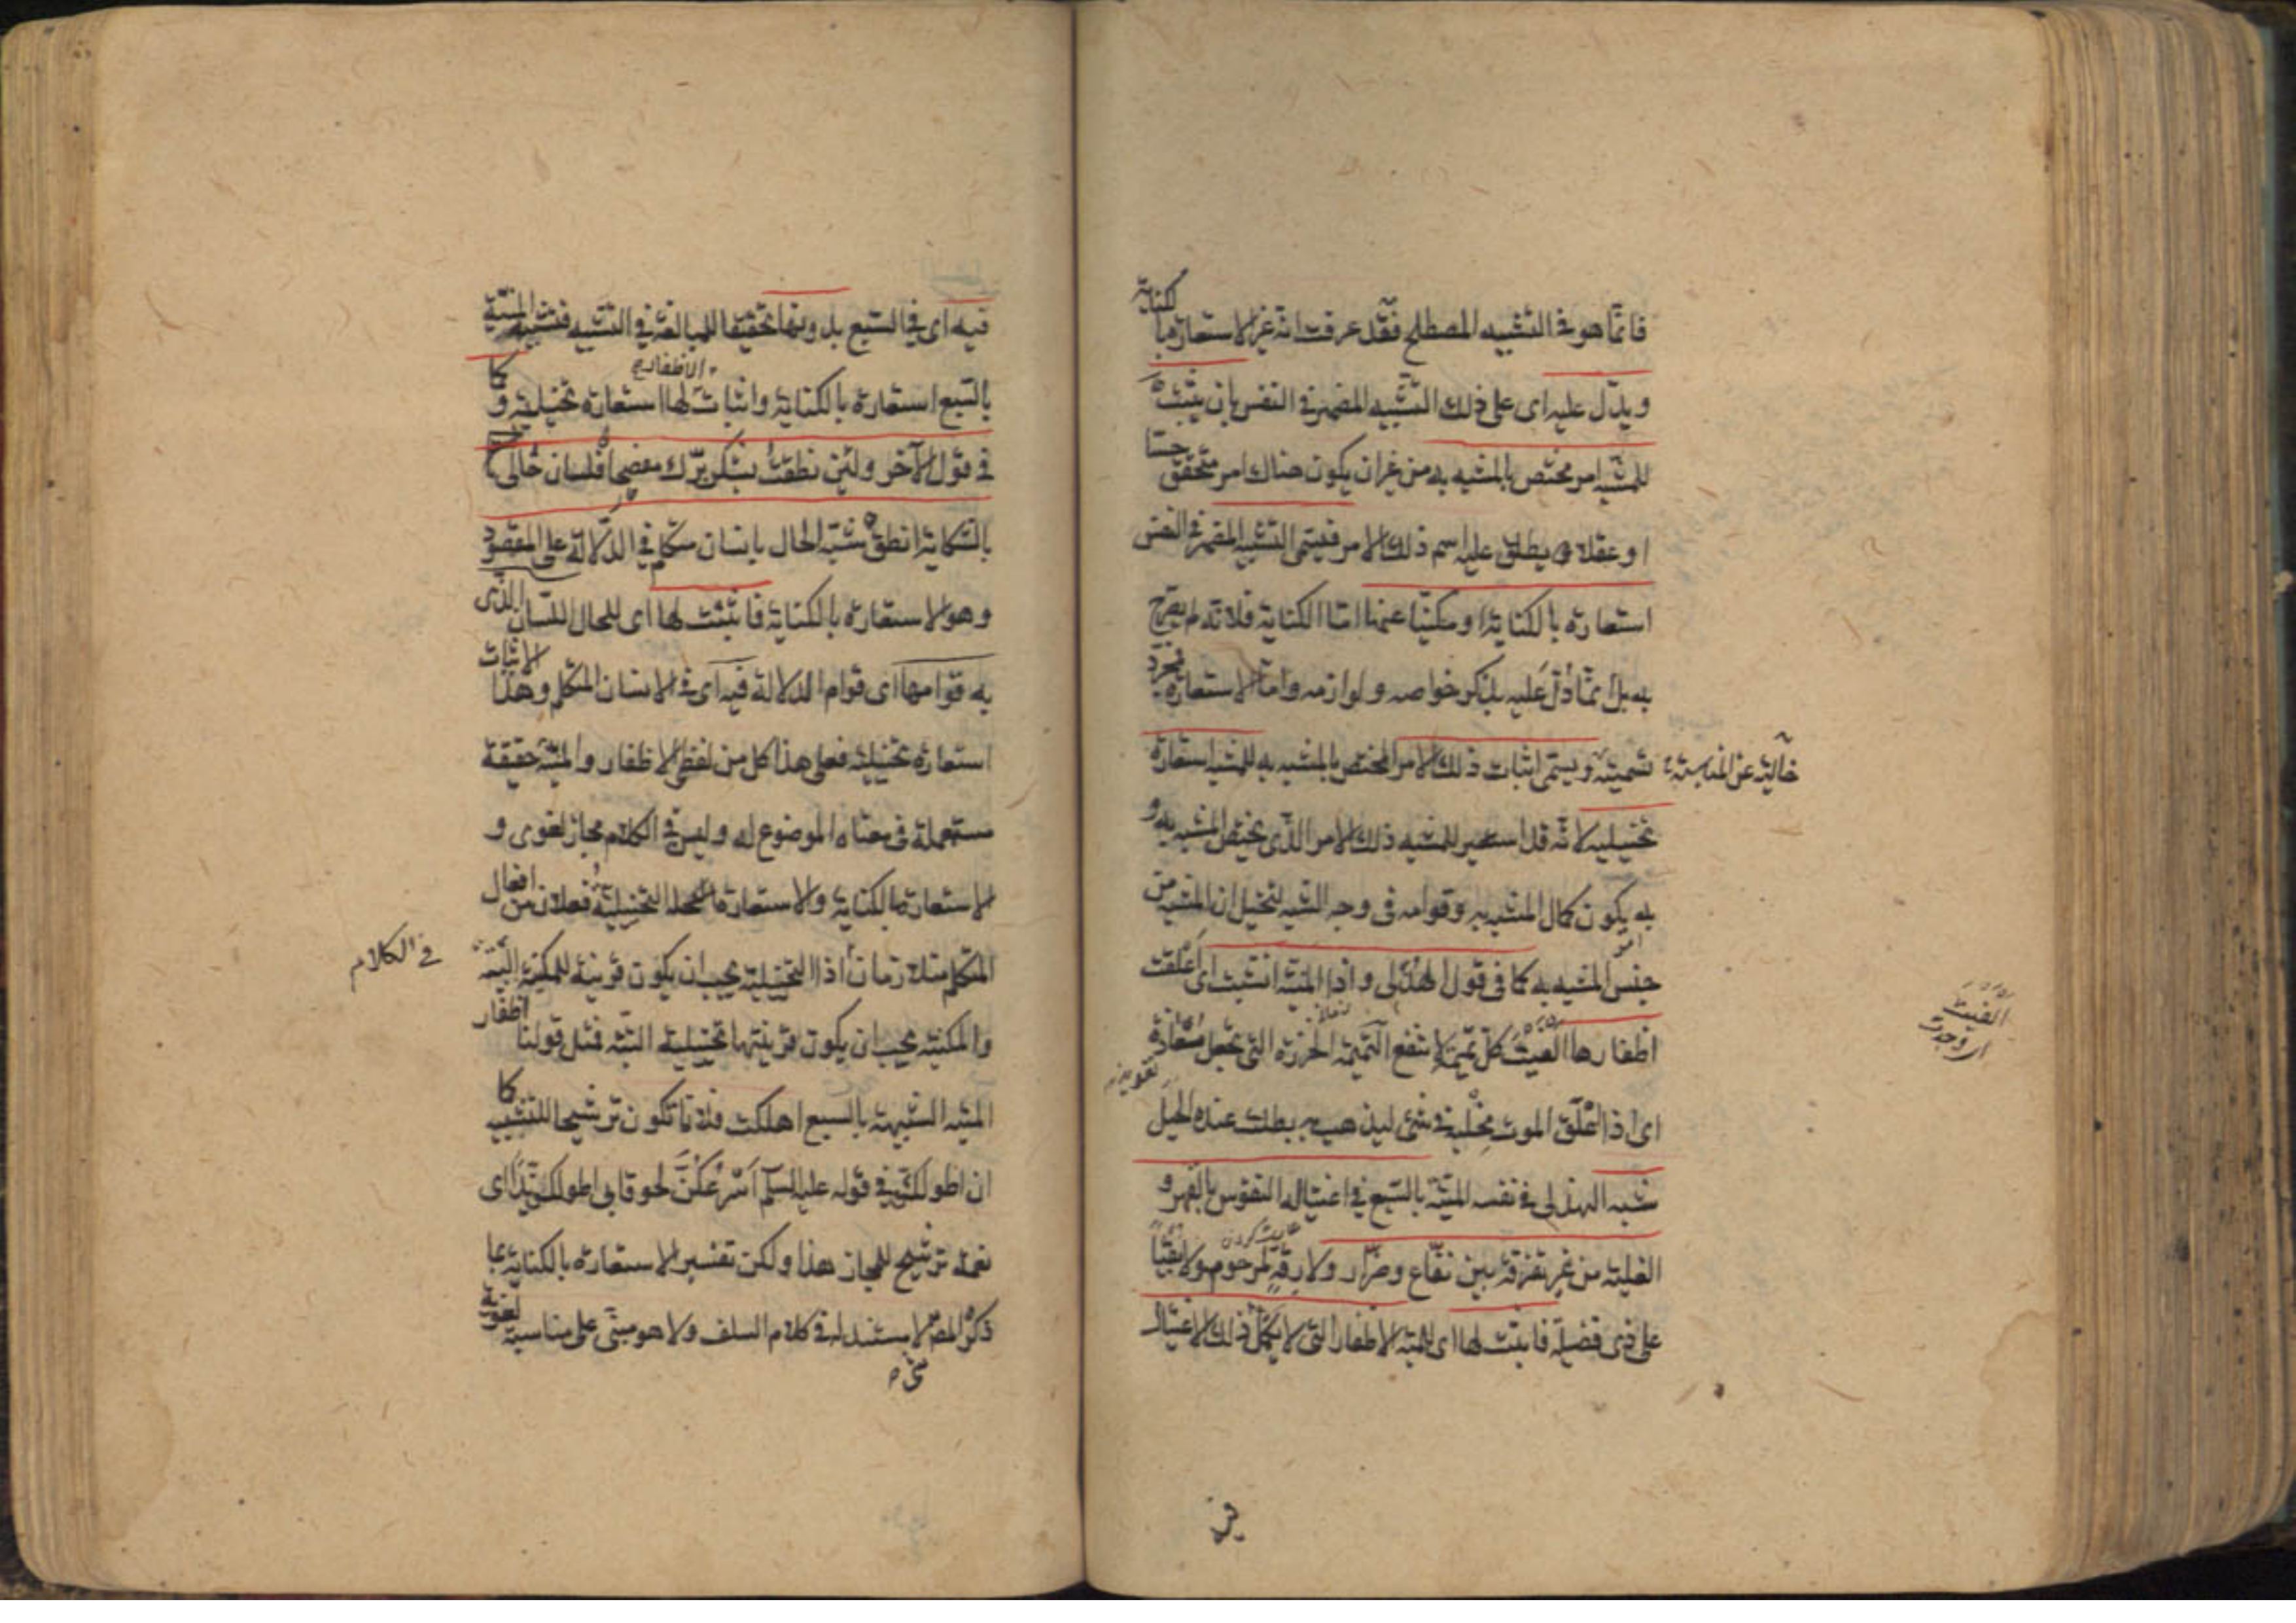 فانما هو فى التشبيه المصطلح فقد عرفت انه غير الاستعارة بالكناية
ويدل عليه اى على ذلك التشبيه المضمر فى النفس بان يثبت
للمشبه امر مختص بالمشبه به من غير ان يكون هناك امر متحقق حسا
او عقلا يطلق عليه اسم ذلك الامر فيسمى التشبيه المضمر فى النفس
استعارة بالكناية او مكنيا عنها اما الكناية فلانه لم يصرح
به بل انما دل عليه بذكر خواصه ولوازمه واما الاستعارة فمجرد
تسمية خالية عن المناسبة ويسمى اثبات ذلك الامر المختص بالمشبه به للمشبه استعارة
تخييلية لانه قد استعير للمشبه ذلك الامر الذى يختص المشبه به و
به يكون كمال المشبه به وقوامه فى وجه الشبه لتخيل ان المشبه من
جنس المشبه به كما فى قول الهذلى واذا المنية انشبت اى اعلقت
اظفارها الفيت كل تميمة لا تنفع التميمة الخرزة التى تجعل معاذة
تعويذ
الفيت
اى وجدت
اى اذا اعلق الموت مخلبه فى شئ ليذهب به بطلت عنده الحيل
شبه الهذلى فى نفسه المنية بالسبع فى اغتيال النفوس بالقهر و
الغلبة من غير تفرقة بين نفاع وضرار ولا رقة لمرحوم ولا بقيا
على ذى فضيلة فاثبت لها اى للمنية الاظفار التى لا يكمل ذلك الاغتيال
فيه اى فى السبع بدونها تحقيقا للمبالغة فى التشبيه فتشبيه المنية
بالسبع استعارة بالكناية واثبات الاظفار لها استعارة تخييلية وكما
فى قول الآخر ولئن نطقت بشكر برك مفصحا فلسان حالى
بالشكاية انطق شبه الحال بانسان متكلم فى الدلالة على المقصود
وهو الاستعارة بالكناية فاثبت لها اى للحال اللسان الذى
به قوامها اى قوام الدلالة فيه اى فى الانسان المتكلم وهذا الاثبات
استعارة تخييلية فعلى هذا كل من لفظى الاظفار والمنية حقيقة
مستعملة فى معناه الموضوع له وليس فى الكلام مجاز لغوى و
الاستعارة بالكناية والاستعارة التخييلية فعلان من افعال
المتكلم متلازمان اذ التخييلية يجب ان يكون قرينة للمكنية البتة
فى الكلام
والمكنية يجب ان يكون قرينتها تخييلية البتة فمثل قولنا اظفار
المنية الشبيهة بالسبع اهلكت فلانا تكون ترشيحا للتشبيه كما
ان اطولكن فى قوله عليه السلام اسرعكن لحوقا بى اطولكن يدا اى
نعمة ترشيح للمجاز هذا ولكن تفسير الاستعارة بالكناية بما
ذكره المص لا مستند له فى كلام السلف ولا هو مبنى على مناسبة لغوية